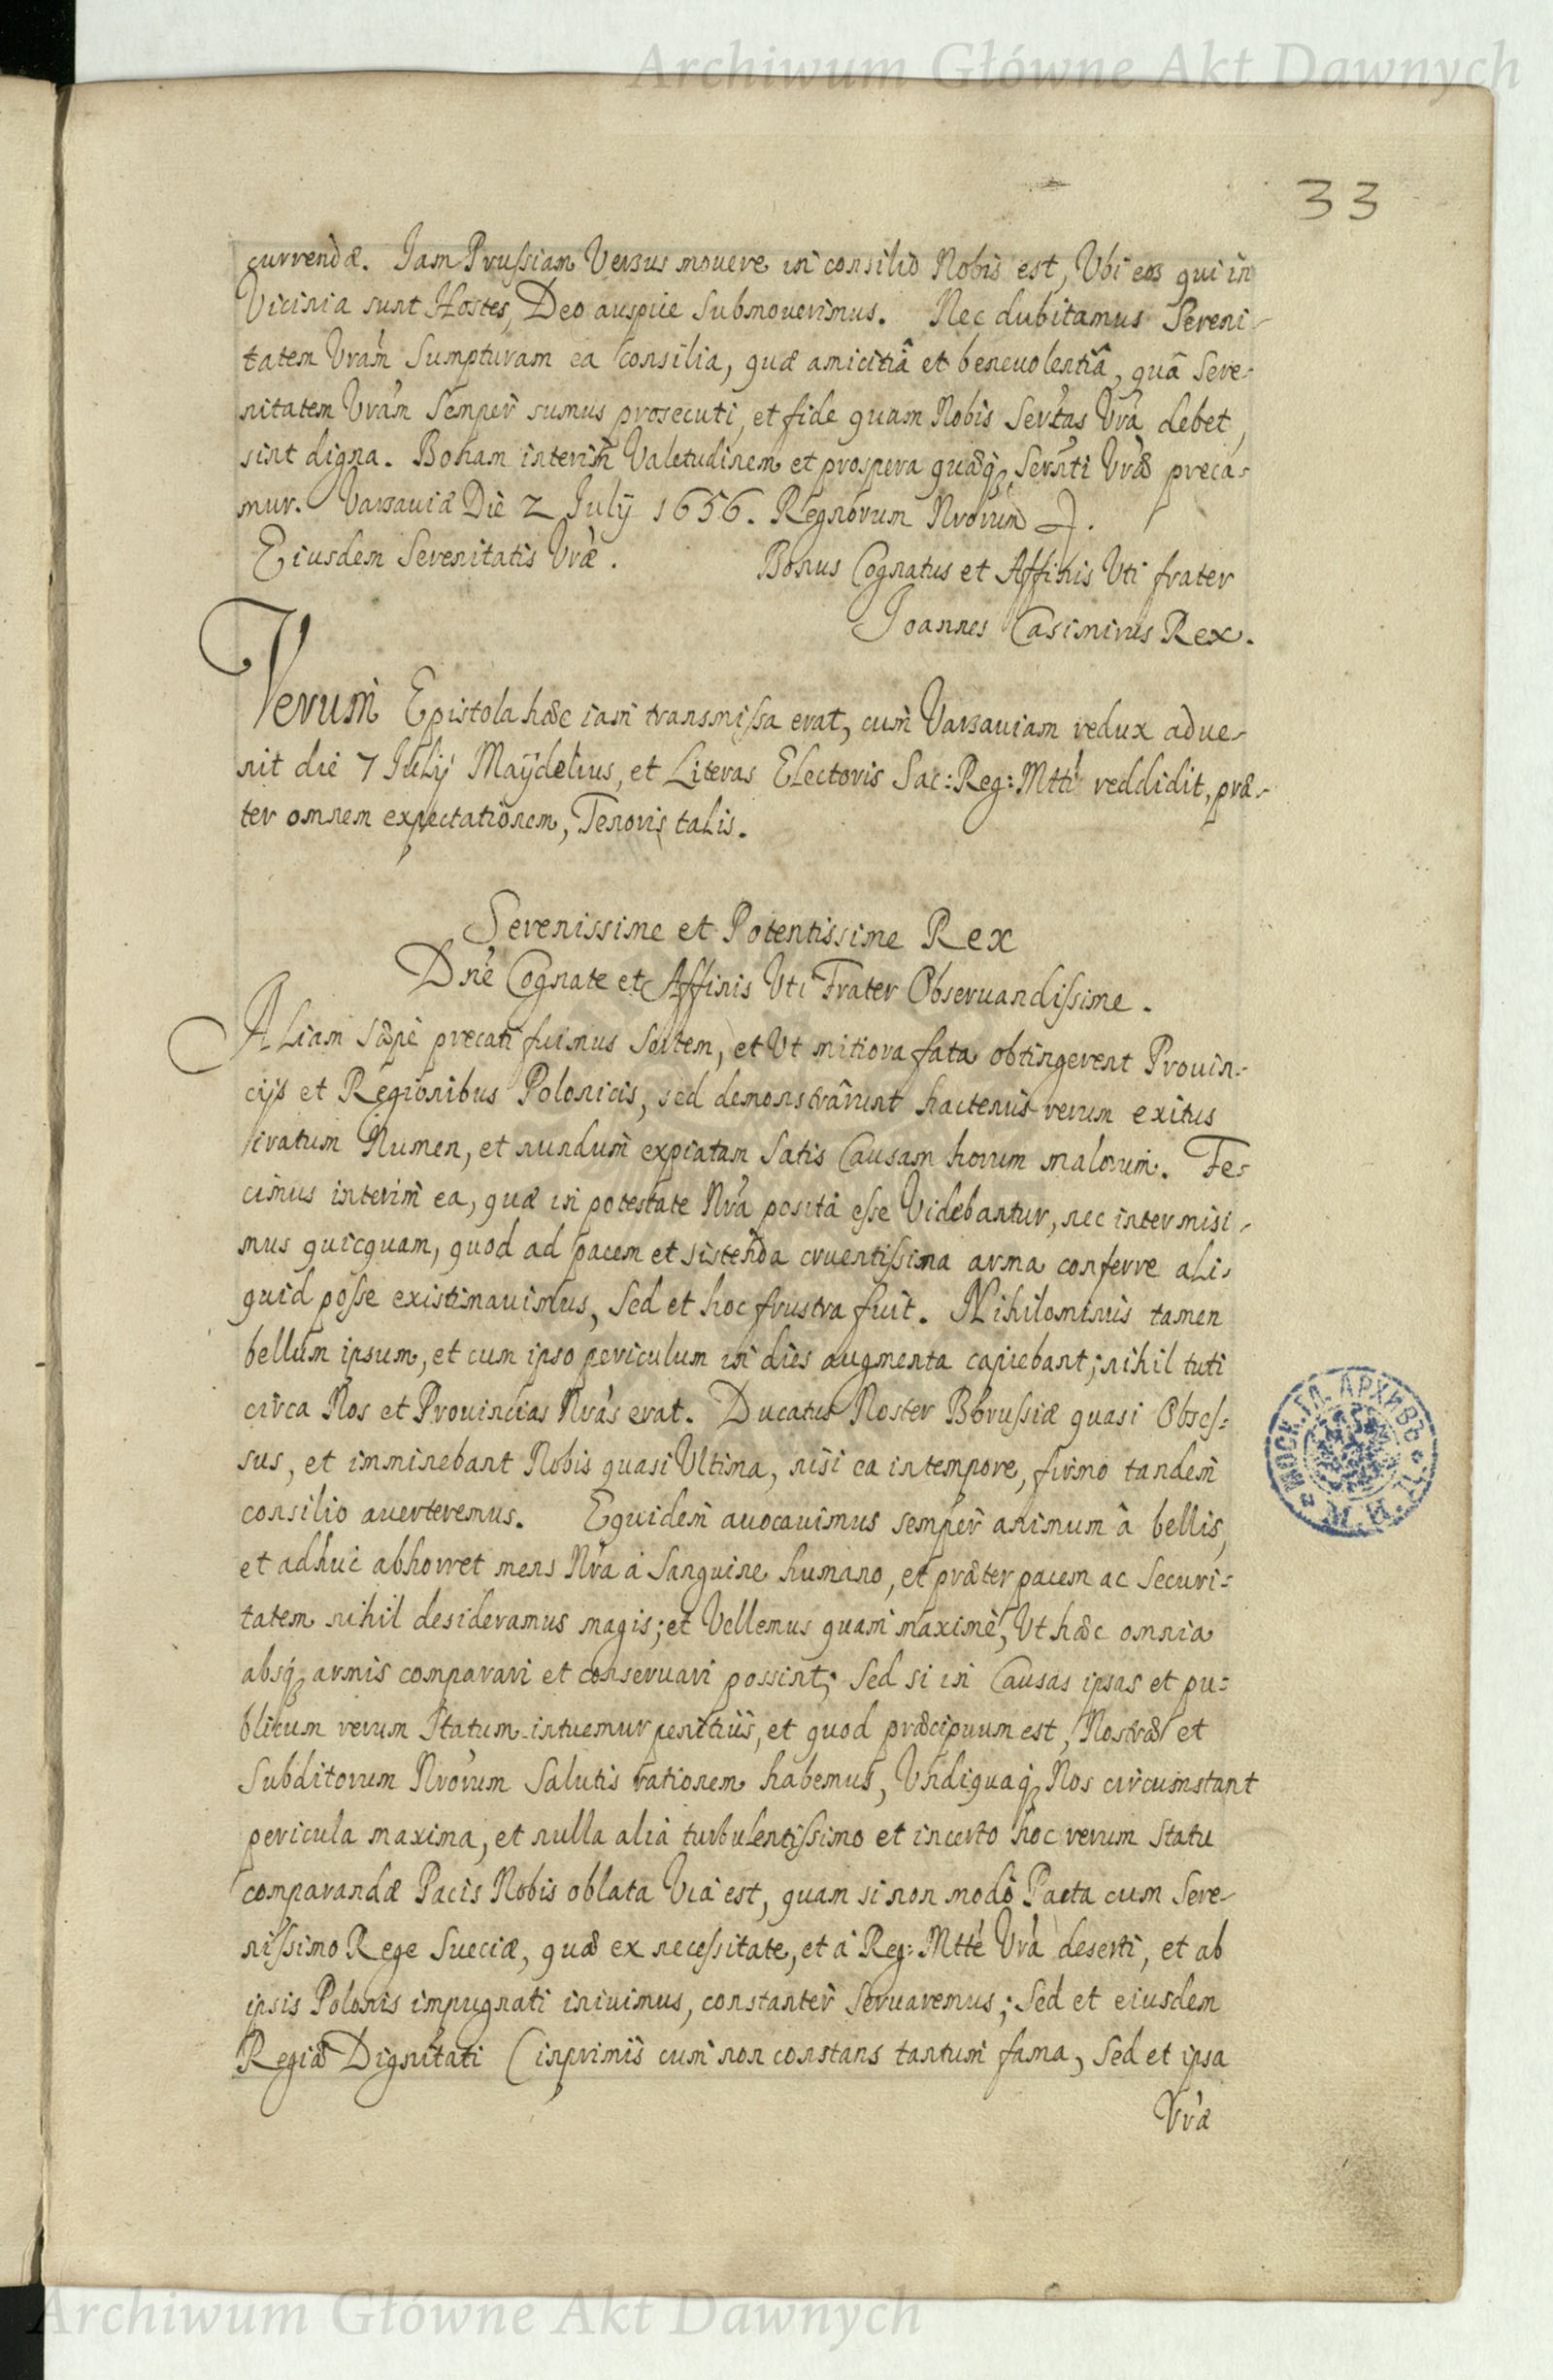 Archiwum Główne Akt Dawnych
33
currendæ. Iam Prussiam Versus mouere in consilio Nobis est, Vbi eos qui in
Vicinia sunt Hostes, Deo auspice submouerimus. Nec dubitamus Sereni-
tatem Vram sumpturam ea consilia, quæ amicitiâ et beneuolentiâ, quâ Sere-
nitatem Vram semper sumus prosecuti, et fide quam Nobis Sertas Vra debet,
sint digna. Bonam interim Valetudinem et prospera quæq; Sernti Vræ preca-
mur. Varsauiæ Die 2 Iulij 1656. Regnorum Nrorum
Eiusdem Serenitatis Vræ. Bonus Cognatus et Affinis Vti frater
Joannes Casimirus Rex.
Verum Epistola hæc iam transmissa erat, cum Varsauiam redux adue-
nit die 7 Iulij Maÿdelius, et Literas Electoris Sac: Reg: Mtti reddidit, præ-
ter omnem expectationem, Tenoris talis.
Serenissime et Potentissime Rex
Dne Cognate et Affinis Vti Frater Obseruandissime.
Aliam sæpè precati fuimus sortem, et Vt mitiora fata obtingerent Prouin-
cijs et Regionibus Polonicis, sed demonstrârunt hactenus rerum exitus
iratum Numen, et nundum expiatam satis Causam horum malorum. Fe-
cimus interim ea, quæ in potestate Nra posita esse Videbantur, nec intermisi-
mus quicquam, quod ad pacem et sistenda cruentissima arma conferre ali-
quid posse existimauimus, sed et hoc frustra fuit. Nihilominus tamen
bellum ipsum, et cum ipso periculum in dies augmenta capiebant; nihil tuti
circa Nos et Prouincias Nras erat. Ducatus Noster Borussiæ quasi Obses-
sus, et imminebant Nobis quasi Vltima, nisi ea in tempore, firmo tandem
consilio auerteremus. Equidem auocauimus semper animum à bellis,
et adhuc abhorret mens Nra à sanguine humano, et præter pacem ac securi-
tatem nihil desideramus magis; et Vellemus quam maximè, Vt hæc omnia
absq; armis comparari et conseruari possint; sed si in Causas ipsas et pu-
blicum rerum Statum intuemur penitius, et quod præcipuum est, Nostræ et
Subditorum Nrorum Salutis rationem habemus, Vndiquaq; Nos circumstant
pericula maxima, et nulla alia turbulentissimo et incerto hoc rerum statu
comparandæ Pacis Nobis oblata Via est, quam si non modò Pacta cum Sere-
nissimo Rege Sueciæ, quæ ex necessitate, et à Reg: Mtte Vra deserti, et ab
ipsis Polonis impugnati iniuimus, constanter seruaremus; Sed et eiusdem
Regiæ Dignitati (inprimis cum non constans tantum fama, sed et ipsa
Vræ
МОСК. ГЛ. АРХИВЪ
Archiwum Główne Akt Dawnych